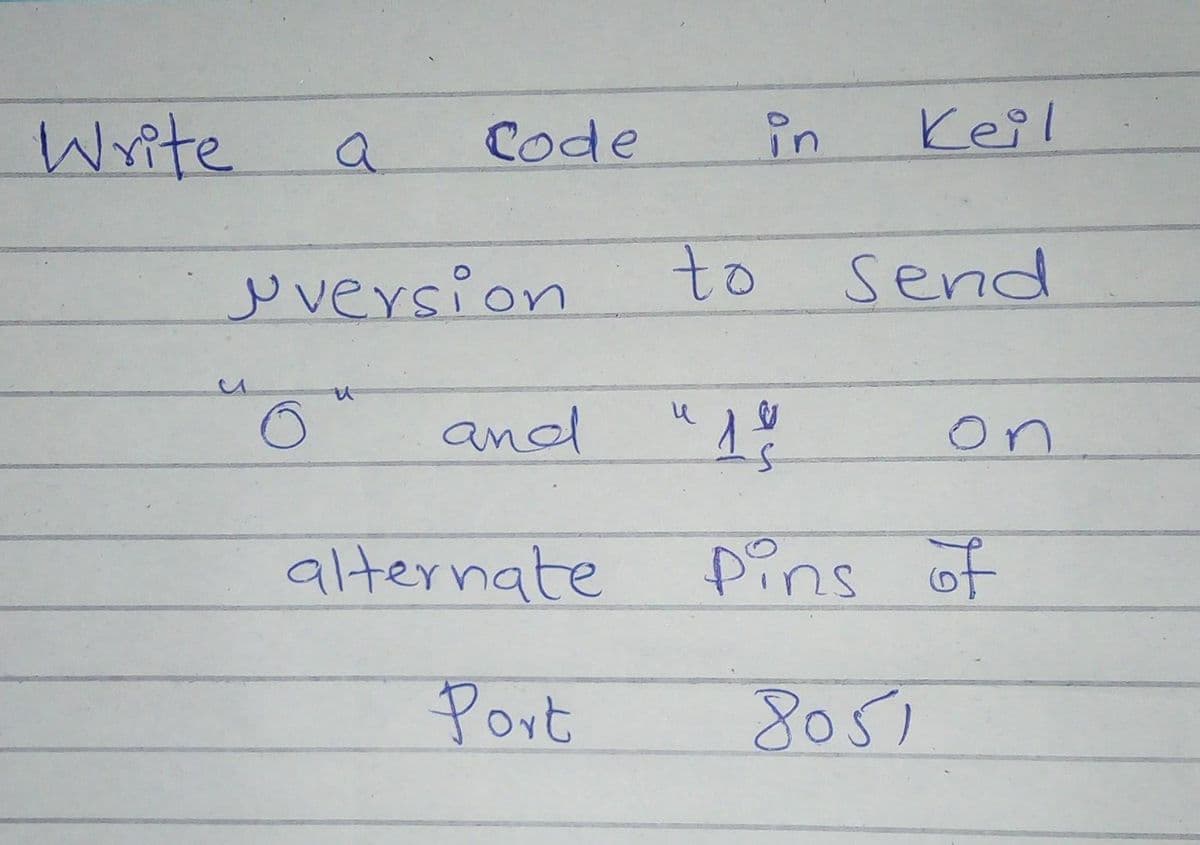 Write a Code in Keil
μversion to Send
"0" and "1"s on
alternate Pins of
Port 8051